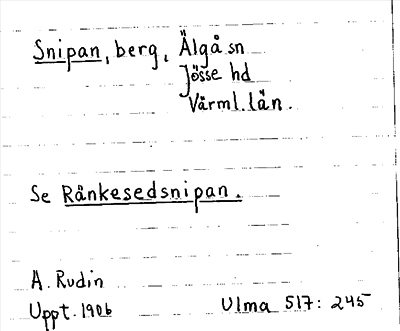 Snipan, berg, Älgå sn
Jösse hd
Värml. län.
Se Rånkesedsnipan.
A. Rudin
Uppt. 1906
Ulma 517: 245